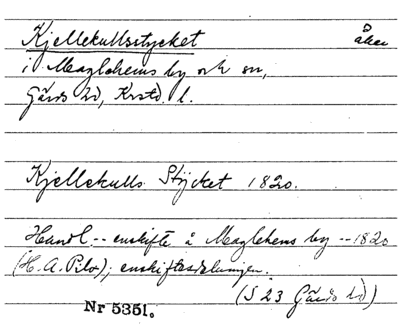 Kjellekullsstycket åker
i Maglehems by och sn,
Gärds hd, Krstd. l.
Kjellekulls Stÿcket 1820.
Handl. -- enskifte å Maglehems by -- 1820
(H. A. Pihl); enskiftesdelningen.
(S 23 Gärds hd)
Nr 5351.